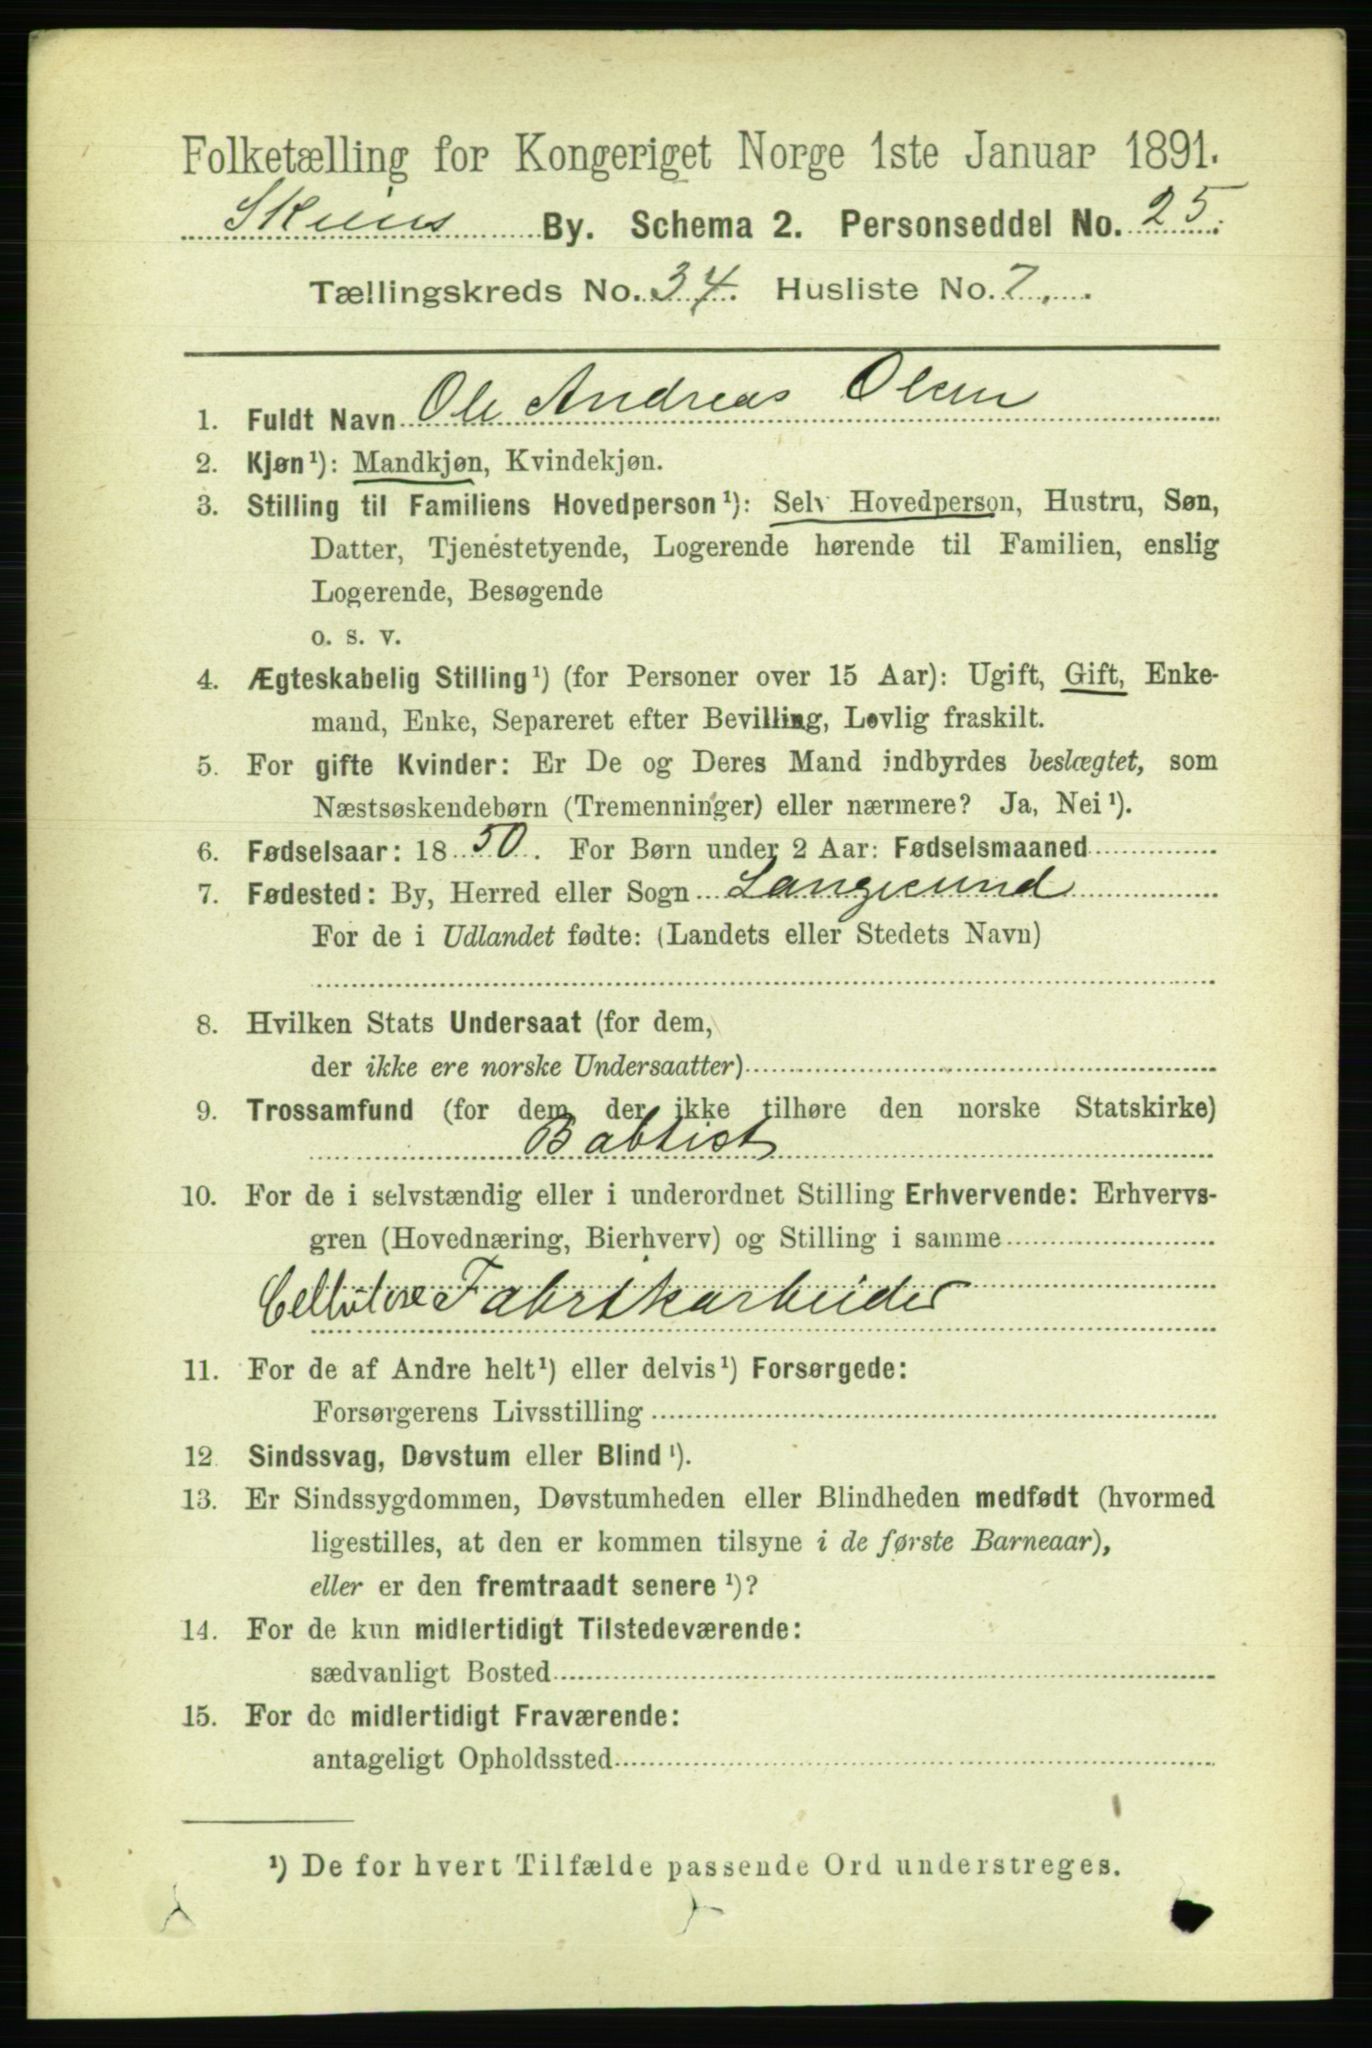 Folketælling for Kongeriget Norge 1ste Januar 1891.
Skiens By. Schema 2. Personseddel No. 25.
Tællingskreds No. 34. Husliste No. 7.
1. Fuldt Navn Ole Andreas Olsen
2. Kjøn¹): Mandkjøn, Kvindekjøn.
3. Stilling til Familiens Hovedperson¹): Selv Hovedperson, Hustru, Søn,
Datter, Tjenestetyende, Logerende hørende til Familien, enslig
Logerende, Besøgende
o. s. v.
4. Ægteskabelig Stilling¹) (for Personer over 15 Aar): Ugift, Gift, Enke-
mand, Enke, Separeret efter Bevilling, Lovlig fraskilt.
5. For gifte Kvinder: Er De og Deres Mand indbyrdes beslægtet, som
Næstsøskendebørn (Tremenninger) eller nærmere? Ja, Nei¹).
6. Fødselsaar: 1850. For Børn under 2 Aar: Fødselsmaaned
7. Fødested: By, Herred eller Sogn Langesund
For de i Udlandet fødte: (Landets eller Stedets Navn)
8. Hvilken Stats Undersaat (for dem,
der ikke ere norske Undersaatter)
9. Trossamfund (for dem, der ikke tilhøre den norske Statskirke)
Babtist
10. For de i selvstændig eller i underordnet Stilling Erhvervende: Erhvervs-
gren (Hovednæring, Bierhverv) og Stilling i samme
Cellulose Fabrikarbeider
11. For de af Andre helt¹) eller delvis¹) Forsørgede:
Forsørgerens Livsstilling
12. Sindssvag, Døvstum eller Blind¹).
13. Er Sindssygdommen, Døvstumheden eller Blindheden medfødt (hvormed
ligestilles, at den er kommen tilsyne i de første Barneaar),
eller er den fremtraadt senere¹)?
14. For de kun midlertidigt Tilstedeværende:
sædvanligt Bosted
15. For de midlertidigt Fraværende:
antageligt Opholdssted
¹) De for hvert Tilfælde passende Ord understreges.